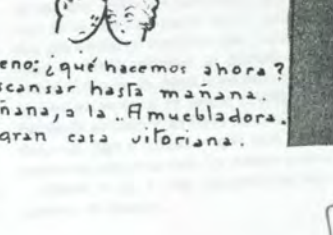 eno: ¿qué hacemos ahora?
scansar hasta mañana.
ñana, a la .. Amuebladora.
gran casa vitoriana.